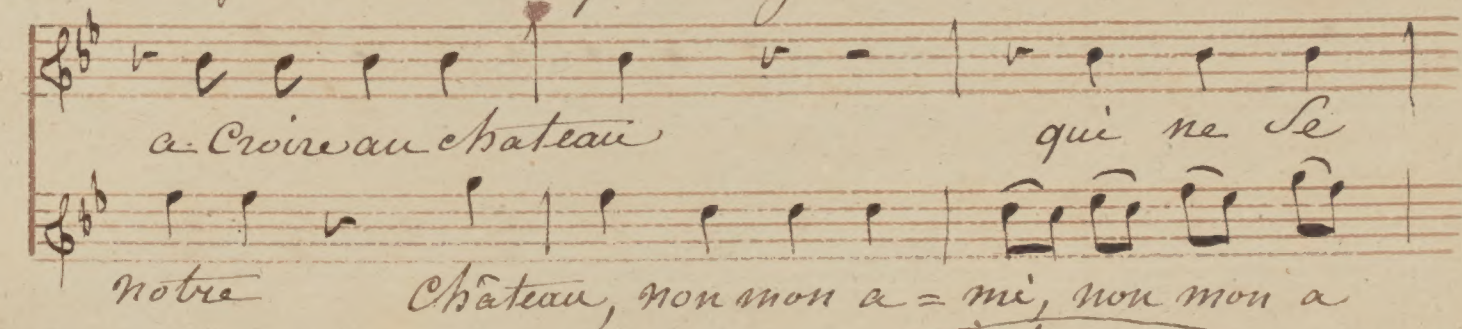 a Croire au chateau qui ne se
notre Château, non mon a = mi, non mon a